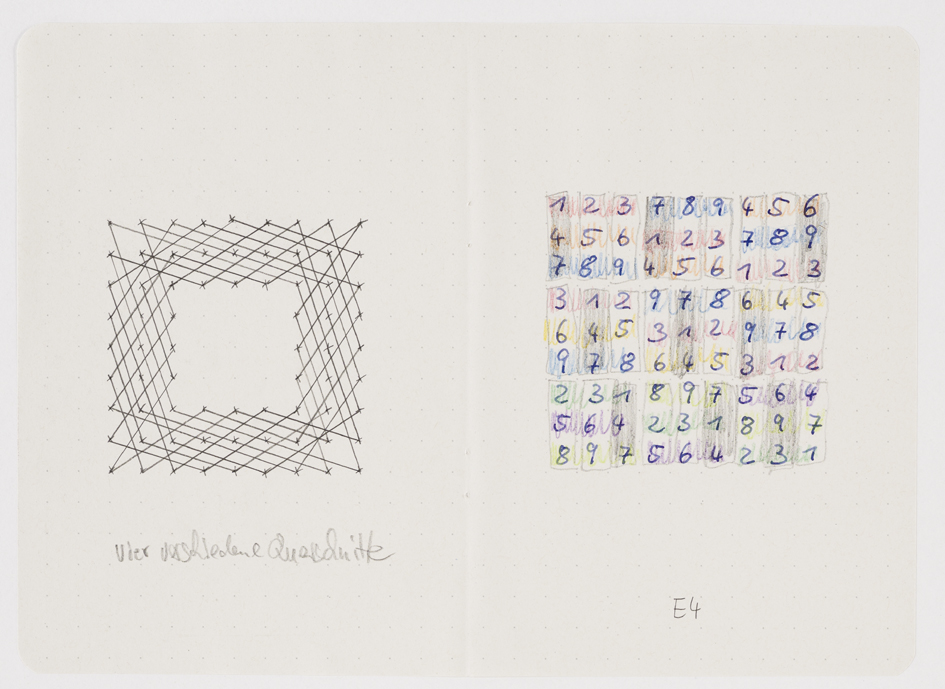 vier verschiedene Querschnitte
1 2 3 7 8 9 4 5 6
4 5 6 1 2 3 7 8 9
7 8 9 4 5 6 1 2 3
3 1 2 9 7 8 6 4 5
6 4 5 3 1 2 9 7 8
9 7 8 6 4 5 3 1 2
2 3 1 8 9 7 5 6 4
5 6 4 2 3 1 8 9 7
8 9 7 5 6 4 2 3 1
E4